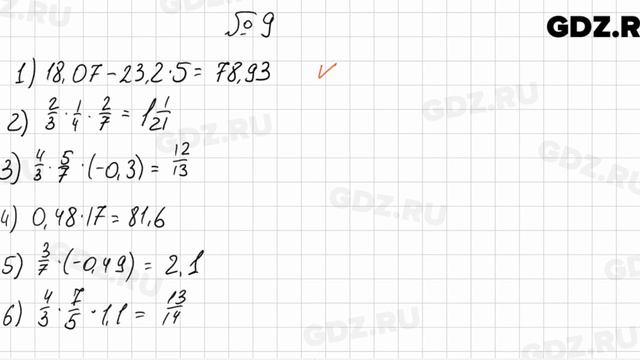 № 9
GDZ.R
1) 18,07 - 23,2 · 5 = 78,93 ✓
2) 2/3 · 1/4 · 2/7 = 1 1/21
3) 4/3 · 5/7 · (-0,3) = 12/13
4) 0,48 · 17 = 81,6
5) 3/7 · (-0,49) = 2,1
6) 4/3 · 7/5 · 1,1 = 13/14
GDZ.RU
GDZ.RU
GDZ.RU
GDZ.RU